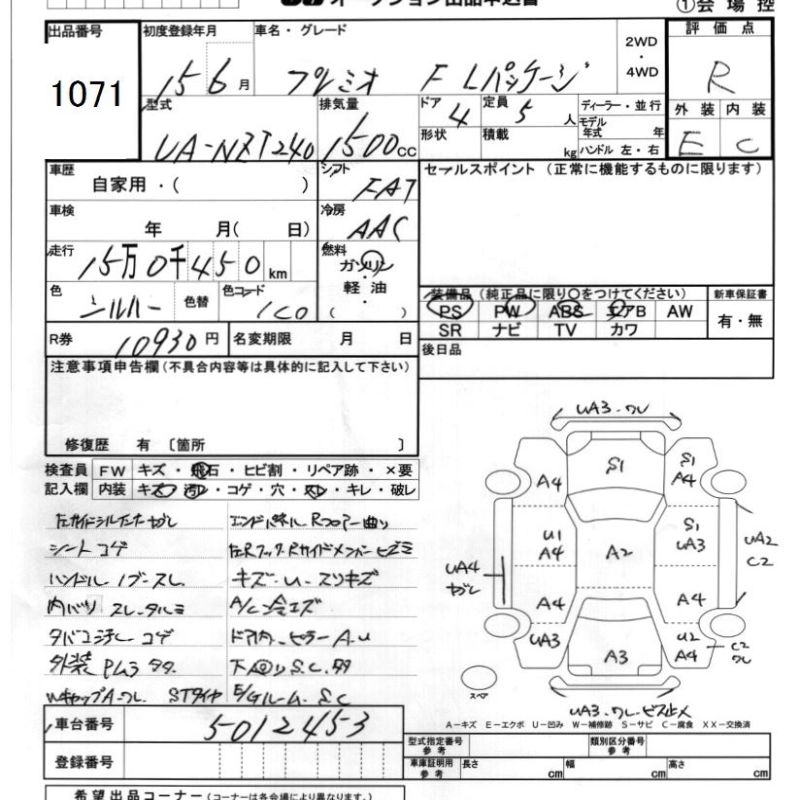 オークション出品申込書
①会場控
出品番号 初度登録年月 車名・グレード
1071 15 6月 プレミオ F Lパッケージ 2WD・4WD
評価点 R
型式 排気量 ドア 4 定員 5人 ディーラー・並行
UA-NZT240 1500cc 形状 積載 kg モデル年式 年 ハンドル 左・右
外装 内装
E C
車歴 自家用・( ) シフト FAT
セールスポイント(正常に機能するものに限ります)
車検 年 月( 日) 冷房 AAC
走行 15万0千450km 燃料 ガソリン・軽油 ( )
色 シルバー 色替 色コード 1C0
装備品(純正品に限り○をつけてください) 新車保証書
PS PW ABS エアB AW 有・無
SR ナビ TV カワ
R券 10930円 名変期限 月 日
後日品
注意事項申告欄(不具合内容等は具体的に記入して下さい)
修復歴 有 〔箇所 〕
検査員 FW キズ・飛石・ヒビ割・リペア跡・×要
記入欄 内装 キズ・汚れ・コゲ・穴・スレ・キレ・破レ
シート コゲ
キズ・U・スリキズ
内バリ スレ・タルミ
タバコ
ドア内・ピラー A.U
外装
STタイヤ E/Gルーム S.C
UA3・ワレ
S1
A4
S1
A4
U1
A4
A2
S1
UA3
UA2
C2
UA4
A4
A4
UA3
A3
U2
A4
C2
ワレ
スペア
UA3・ワレ・ビス止メ
A-キズ E-エクボ U-凹み W-補修跡 S-サビ C-腐食 XX-交換済
車台番号 5-012453
登録番号
型式指定番号 参考 類別区分番号 参考
車庫証明用 参考 長さ cm 幅 cm 高さ cm
希望出品コーナー(コーナーは各会場により異なります。)